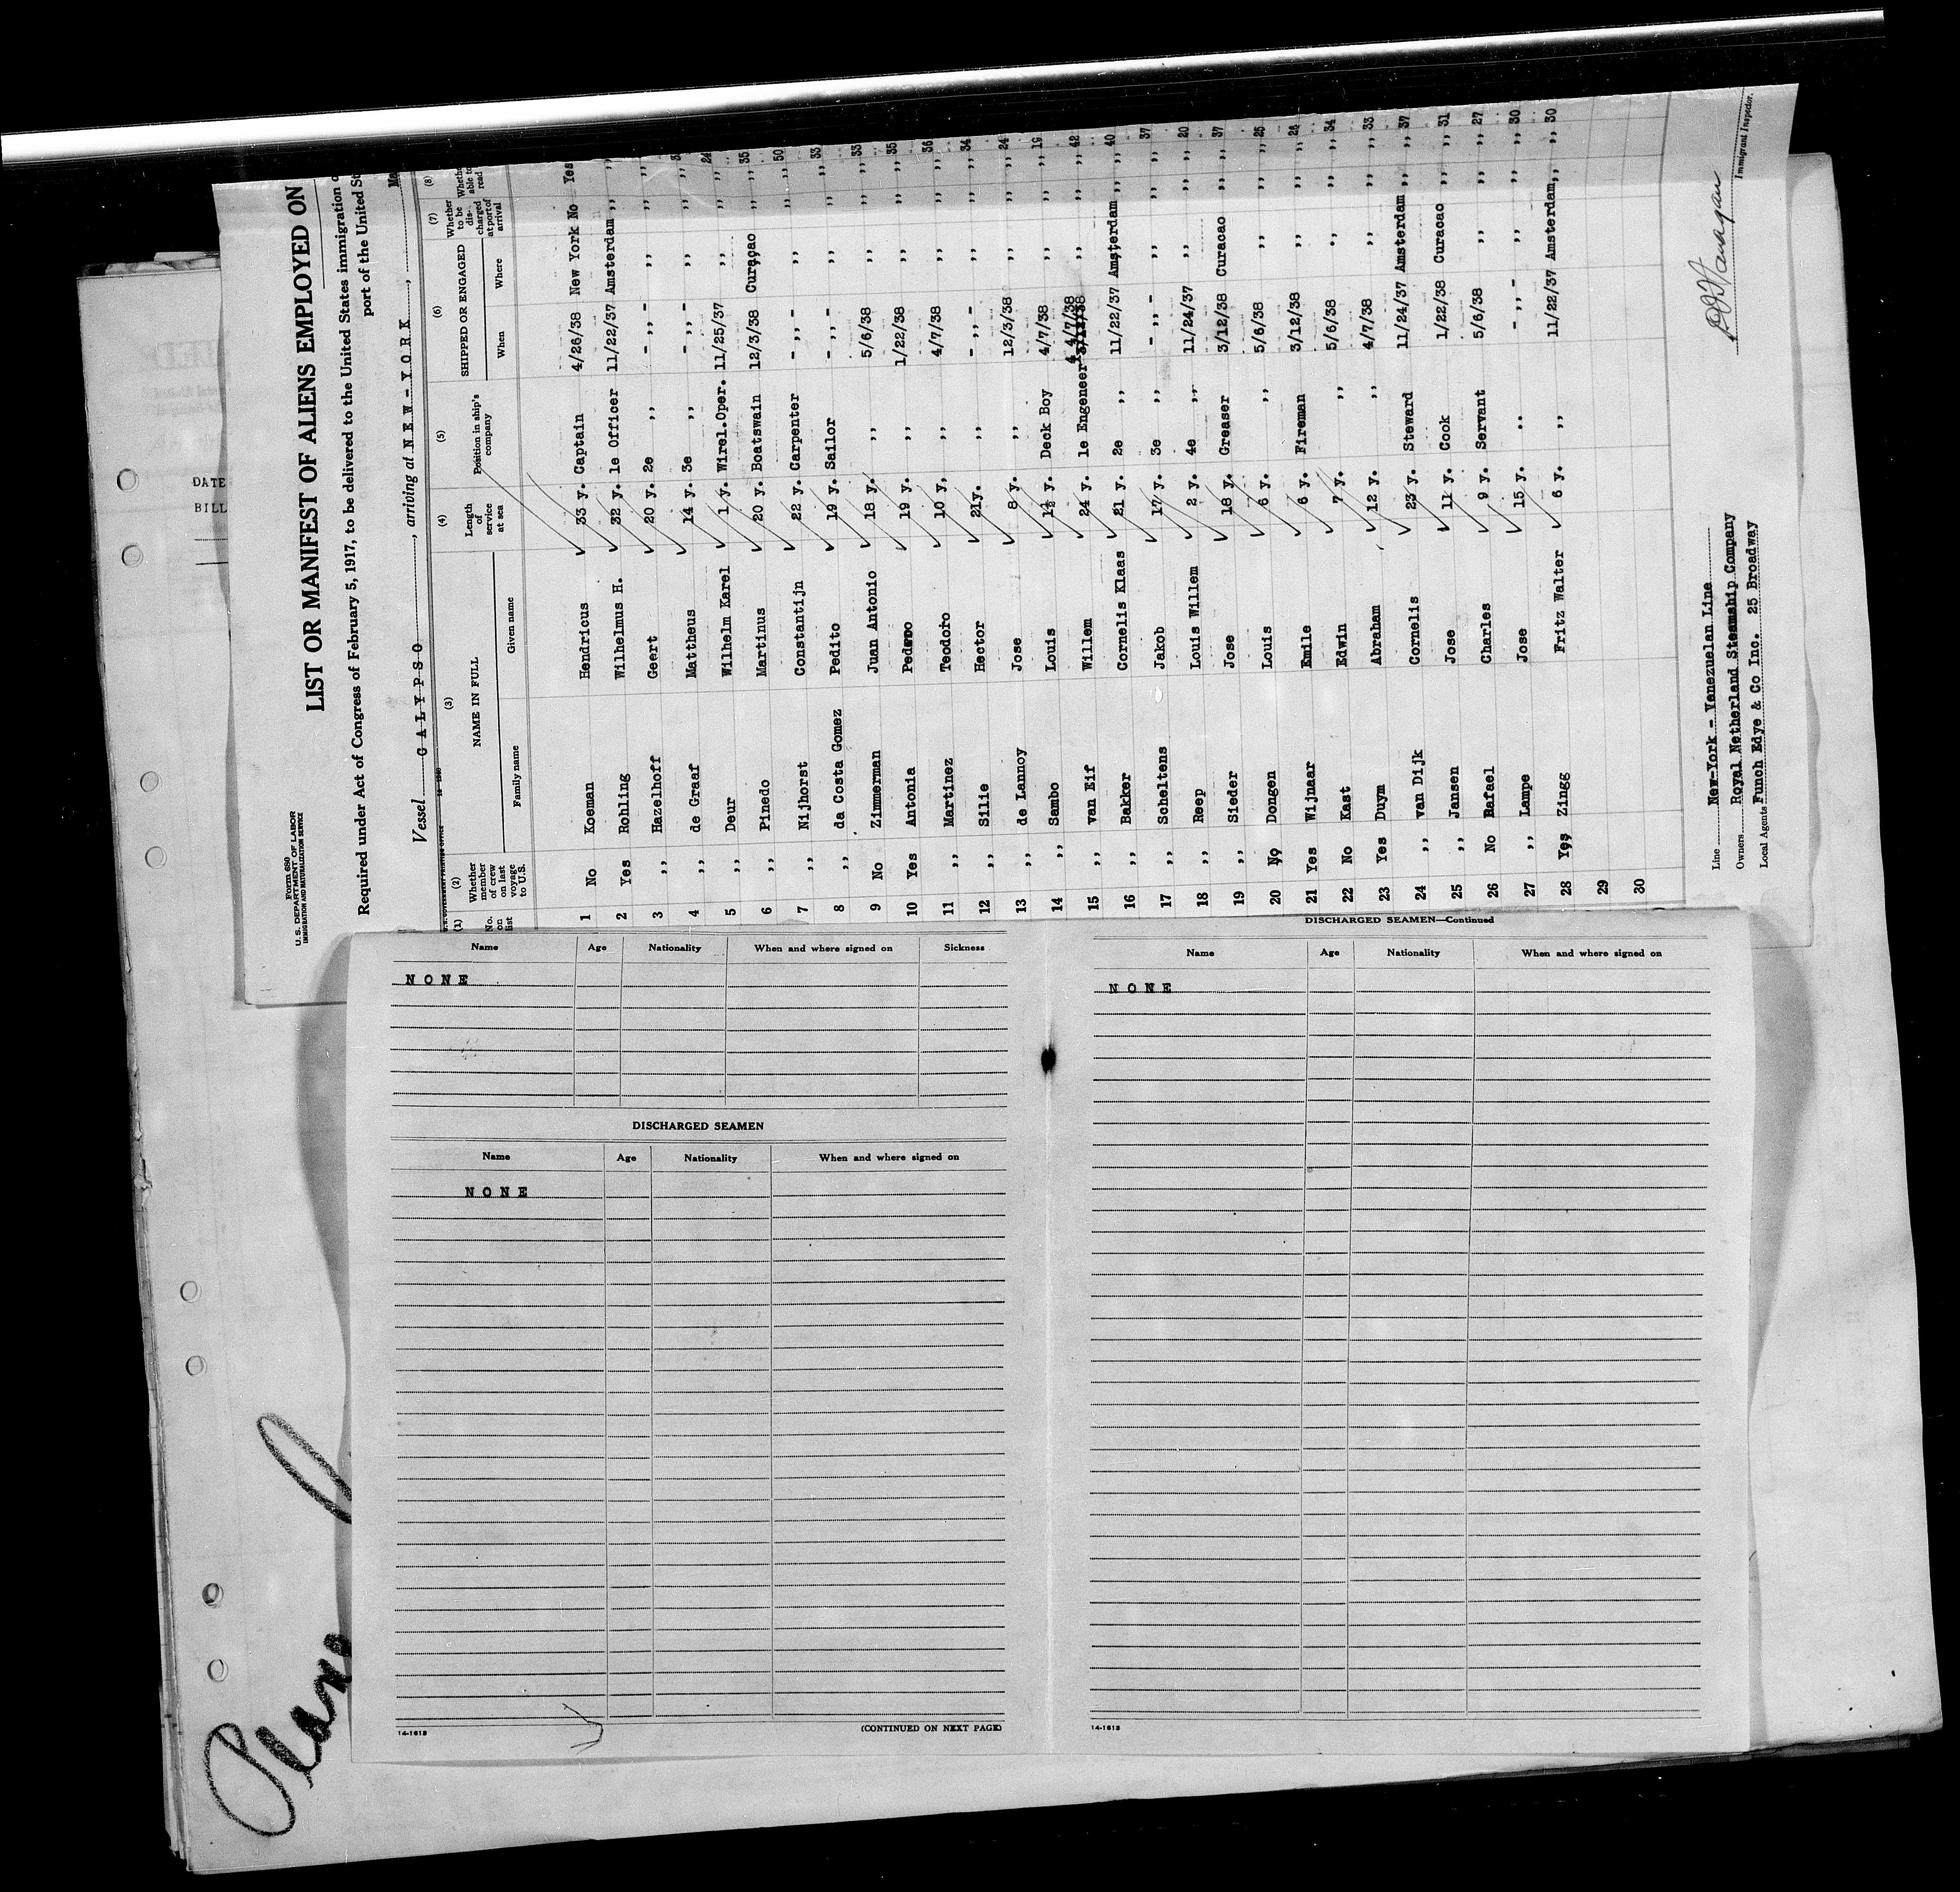 Form 680
U. S. DEPARTMENT OF LABOR
IMMIGRATION AND NATURALIZATION SERVICE
LIST OR MANIFEST OF ALIENS EMPLOYED ON
Required under Act of Congress of February 5, 1917, to be delivered to the United States immigration
port of the United
Vessel CALYPSO, arriving at NEW-YORK,
(1) (2) (3) (4) (5) (6) (7) (8)
No. on list
Whether member of crew on last voyage to U.S.
NAME IN FULL
Family name Given name
Length of service at sea
Position in ship's company
SHIPPED OR ENGAGED
When Where
Whether to be discharged at port of arrival
Whether able to read
1 No Koeman Hendricus 33 y. Captain 4/26/38 New York No Yes
2 Yes Rohling Wilhelmus H. 32 y. 1e Officer 11/22/37 Amsterdam ,,
3 ,, Hazelhoff Geert 20 y. 2e ,, - ,, - ,, ,,
4 ,, de Graaf Mattheus 14 y. 3e ,, - ,, - ,, ,,
5 ,, Deur Wilhelm Karel 1 y. Wirel.Oper. 11/25/37 ,, ,, 24
6 ,, Pinedo Martinus 20 y. Boatswain 12/3/38 Curacao ,, ,, 35
7 ,, Nijhorst Constantijn 22 y. Carpenter - ,, - ,, ,, 50
8 ,, da Costa Gomez Pedito 19 y. Sailor - ,, - ,, ,, ,, 33
9 No Zimmerman Juan Antonio 18 y. ,, 5/6/38 ,, ,, ,, 33
10 Yes Antonia Pedro 19 y. ,, 1/22/38 ,, ,, ,, 35
11 ,, Martinez Teodoro 10 y. ,, 4/7/38 ,, ,, ,, 36
12 ,, Silie Hector 21y. ,, - ,, - ,, ,, ,, 34
13 ,, de Lannoy Jose 8 y. ,, 12/3/38 ,, ,, ,, 24
14 ,, Sambo Louis 1½ y. Deck Boy 4/7/38 ,, ,, ,, 19
15 ,, van Eif Willem 24 y. 1e Engeneer 4/7/38 ,, ,, ,, 42
16 ,, Bakker Cornelis Klaas 21 y. 2e ,, 11/22/37 Amsterdam ,, ,, 40
17 ,, Scheltens Jakob 17 y. 3e ,, - ,, - ,, ,, ,, 37
18 ,, Reep Louis Willem 2 y. 4e ,, 11/24/37 ,, ,, ,, 20
19 ,, Sieder Jose 18 y. Greaser 3/12/38 Curacao ,, ,, 37
20 No Dongen Louis 6 y. ,, 5/6/38 ,, ,, ,, 25
21 Yes Wijnaar Emile 6 y. Fireman 3/12/38 ,, ,, ,, 28
22 No Kast Edwin 7 y. ,, 5/6/38 ,, ,, ,, 34
23 Yes Duym Abraham 12 y. ,, 4/7/38 ,, ,, ,, 33
24 ,, van Dijk Cornelis 23 y. Steward 11/24/37 Amsterdam ,, ,, 37
25 ,, Jansen Jose 11 y. Cook 1/22/38 Curacao ,, ,, 31
26 No Rafael Charles 9 y. Servant 5/6/38 ,, ,, ,, 27
27 ,, Lampe Jose 15 y. ,, - ,, - ,, ,, ,, 30
28 Yes Zingg Fritz Walter 6 y. ,, 11/22/37 Amsterdam ,, ,, 30
29
30
Line New-York - Venezuelan Line
Owners Royal Netherland Steamship Company
Local Agents Funch Edye & Co Inc. 25 Broadway
Immigrant Inspector.
DATE
BILL
Name Age Nationality When and where signed on Sickness
NONE
DISCHARGED SEAMEN
Name Age Nationality When and where signed on
NONE
14-1613
(CONTINUED ON NEXT PAGE)
DISCHARGED SEAMEN—Continued
Name Age Nationality When and where signed on
NONE
14-1613